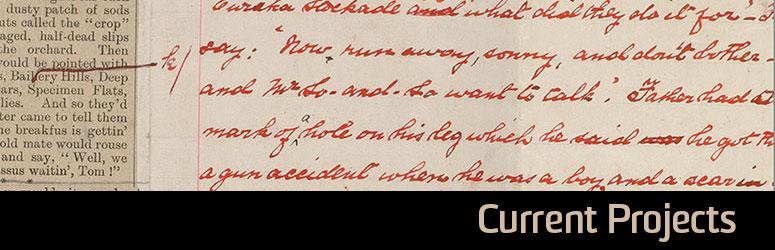 dusty patch of sods
uts called the "crop"
aged, half-dead slips
the orchard. Then
would be pointed with
Hills, Deep
ars, Specimen Flats,
lies. And so they'd
ter came to tell them
he breakfus is gettin'
old mate would rouse
and say, " Well, we
ssus waitin', Tom !"
k/
Eureka Stockade and what did they do it for" -
say; "Now, run away, sonny, and don't bother -
and Mr So-and-So want to talk". Father had a
mark of a hole on his leg which he said was he got th
a gun accident when he was a boy and a scar in
Current Projects